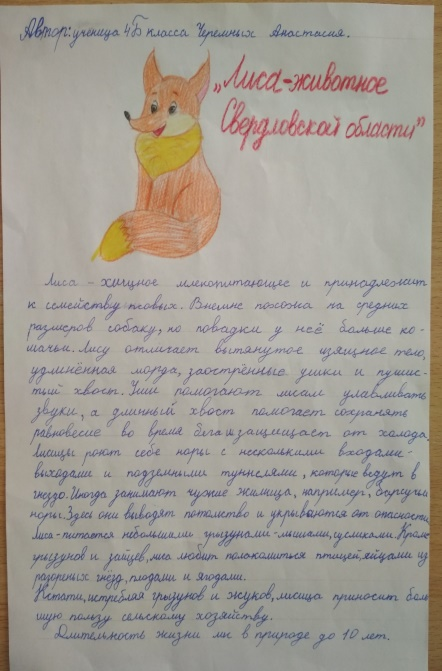 Автор: ученица 4Б класса Черемных Анастасия.
„Лиса-животное
Свердловской области"
Лиса - хищное млекопитающее и принадлежит
к семейству псовых. Внешне похожа на средних
размеров собаку, но повадки у неё больше ко-
шачьи. Лису отличает вытянутое изящное тело,
удлинённая морда, заострённые ушки и пушис-
тый хвост. Уши помогают лисам улавливать
звуки, а длинный хвост помогает сохранять
равновесие во время бега и защищает от холода.
Лисицы роют себе норы с несколькими входами-
выходами и подземными туннелями, которые ведут в
гнездо. Иногда занимают чужие жилища, например, барсучьи
норы. Здесь они выводят потомство и укрываются от опасности.
Лиса - питается небольшими грызунами - мышами, сусликами. Кроме
грызунов и зайцев, лиса любит полакомиться птицей, яйцами из
разорённых гнёзд, плодами и ягодами.
Кстати, истребляя грызунов и жуков, лисица приносит боль-
шую пользу сельскому хозяйству.
Длительность жизни лис в природе до 10 лет.